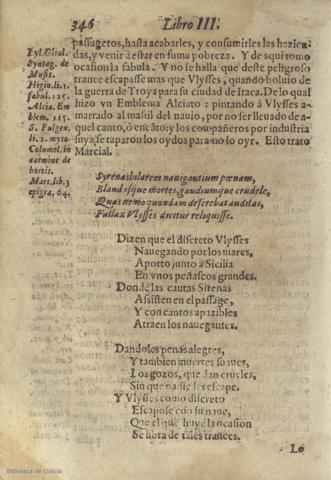 346 Libro III.
passageros, hasta acabarles, y consumirles las hazien-
das, y venir à estar en suma pobreza. Y de aqui tomo
ocasion la fabula. Y no se halla que deste peligroso
trance escapasse mas que Vlysses, quando boluio de
la guerra de Troya para su ciudad de Itaca. De lo qual
hizo vn Emblema Alciato: pintando à Vlysses a-
marrado al mastil del nauio, por no ser lleuado de a-
quel canto, ò encãto; y los compañeros por industria
suya, se taparon los oydos para no lo oyr. Esto trato
Marcial.
Lyl. Giral.
Syntag. de
Musis.
Higin. li. 1.
fabul. 125.
Alcia. Em
blem. 115.
S. Fulgen.
li. 2. myto
Columel. in
carmine de
hortis.
Mart. lib. 3
epigra. 64.
Syrenas hilarem nauigantium pœnam,
Blandasque mortes, gaudiumque crudele,
Quas nemo quondam deserebat auditas,
Fallax Vlysses dicitur reliquisse.
Dizen que el discreto Vlysses
Nauegando por los mares,
Aporto junto à Sicilia
En vnos peñascos grandes.
Donde las cautas Sirenas
Assisten en el passage,
Y con cantos apazibles
Atraen los nauegantes.
Dandoles penas alegres,
Y tambien muertes suaues,
Los gozos, que dan crueles,
Sin que nadie les escape.
Y Vlysses como discreto
Escapose con su naue,
Que el que huye la ocasion
Se libra de tales trances.
Lo
Biblioteca de Galicia